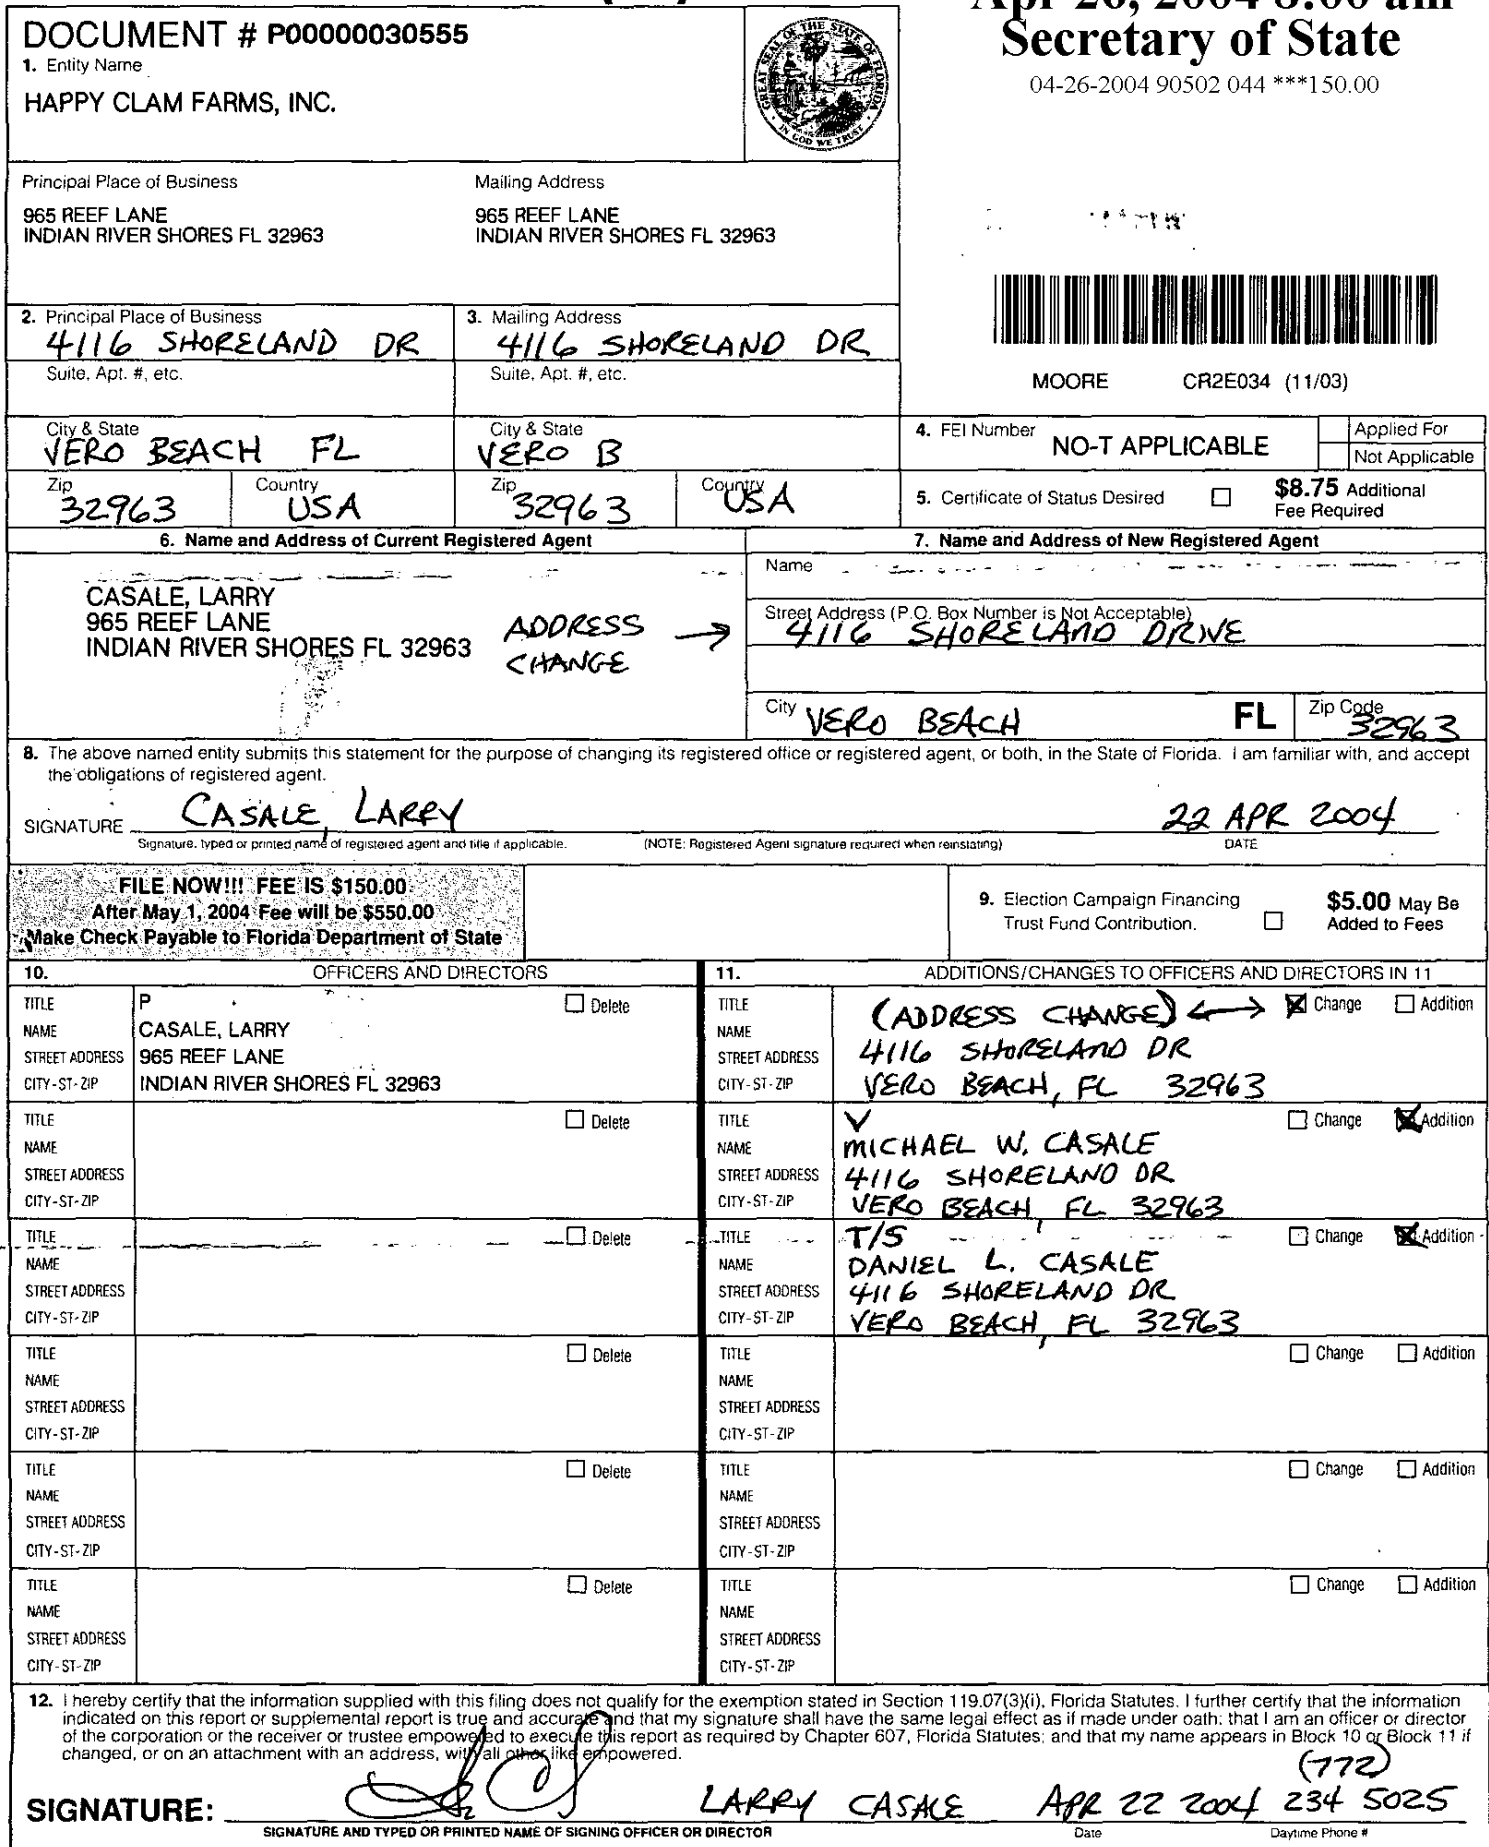 Secretary of State
04-26-2004 90502 044 ***150.00
DOCUMENT # P00000030555
1. Entity Name
HAPPY CLAM FARMS, INC.
GREAT SEAL OF THE STATE OF FLORIDA
IN GOD WE TRUST
Principal Place of Business
965 REEF LANE
INDIAN RIVER SHORES FL 32963
Mailing Address
965 REEF LANE
INDIAN RIVER SHORES FL 32963
MOORE CR2E034 (11/03)
2. Principal Place of Business
4116 SHORELAND DR
Suite, Apt. #, etc.
City & State
VERO BEACH FL
Zip
32963
Country
USA
3. Mailing Address
4116 SHORELAND DR
Suite, Apt. #, etc.
City & State
VERO B
Zip
32963
Country
USA
4. FEI Number
NO-T APPLICABLE
Applied For
Not Applicable
5. Certificate of Status Desired
$8.75 Additional
Fee Required
6. Name and Address of Current Registered Agent
CASALE, LARRY
965 REEF LANE
INDIAN RIVER SHORES FL 32963
ADDRESS
CHANGE
7. Name and Address of New Registered Agent
Name
Street Address (P.O. Box Number is Not Acceptable)
4116 SHORELAND DRIVE
City
VERO BEACH
FL
Zip Code
32963
8. The above named entity submits this statement for the purpose of changing its registered office or registered agent, or both, in the State of Florida. I am familiar with, and accept
the obligations of registered agent.
SIGNATURE CASALE, LARRY 22 APR 2004
Signature, typed or printed name of registered agent and title if applicable. (NOTE: Registered Agent signature required when reinstating) DATE
FILE NOW!!! FEE IS $150.00
After May 1, 2004 Fee will be $550.00
Make Check Payable to Florida Department of State
9. Election Campaign Financing
Trust Fund Contribution.
$5.00 May Be
Added to Fees
10. OFFICERS AND DIRECTORS
TITLE P Delete
NAME CASALE, LARRY
STREET ADDRESS 965 REEF LANE
CITY-ST-ZIP INDIAN RIVER SHORES FL 32963
TITLE Delete
NAME
STREET ADDRESS
CITY-ST-ZIP
TITLE Delete
NAME
STREET ADDRESS
CITY-ST-ZIP
TITLE Delete
NAME
STREET ADDRESS
CITY-ST-ZIP
TITLE Delete
NAME
STREET ADDRESS
CITY-ST-ZIP
TITLE Delete
NAME
STREET ADDRESS
CITY-ST-ZIP
11. ADDITIONS/CHANGES TO OFFICERS AND DIRECTORS IN 11
TITLE (ADDRESS CHANGE) Change Addition
NAME
STREET ADDRESS 4116 SHORELAND DR
CITY-ST-ZIP VERO BEACH, FL 32963
TITLE V Change Addition
NAME MICHAEL W. CASALE
STREET ADDRESS 4116 SHORELAND DR
CITY-ST-ZIP VERO BEACH, FL 32963
TITLE T/S Change Addition
NAME DANIEL L. CASALE
STREET ADDRESS 4116 SHORELAND DR
CITY-ST-ZIP VERO BEACH, FL 32963
TITLE Change Addition
NAME
STREET ADDRESS
CITY-ST-ZIP
TITLE Change Addition
NAME
STREET ADDRESS
CITY-ST-ZIP
TITLE Change Addition
NAME
STREET ADDRESS
CITY-ST-ZIP
12. I hereby certify that the information supplied with this filing does not qualify for the exemption stated in Section 119.07(3)(i), Florida Statutes. I further certify that the information
indicated on this report or supplemental report is true and accurate and that my signature shall have the same legal effect as if made under oath; that I am an officer or director
of the corporation or the receiver or trustee empowered to execute this report as required by Chapter 607, Florida Statutes; and that my name appears in Block 10 or Block 11 if
changed, or on an attachment with an address, with all other like empowered.
(772)
SIGNATURE: LARRY CASALE APR 22 2004 234 5025
SIGNATURE AND TYPED OR PRINTED NAME OF SIGNING OFFICER OR DIRECTOR Date Daytime Phone #